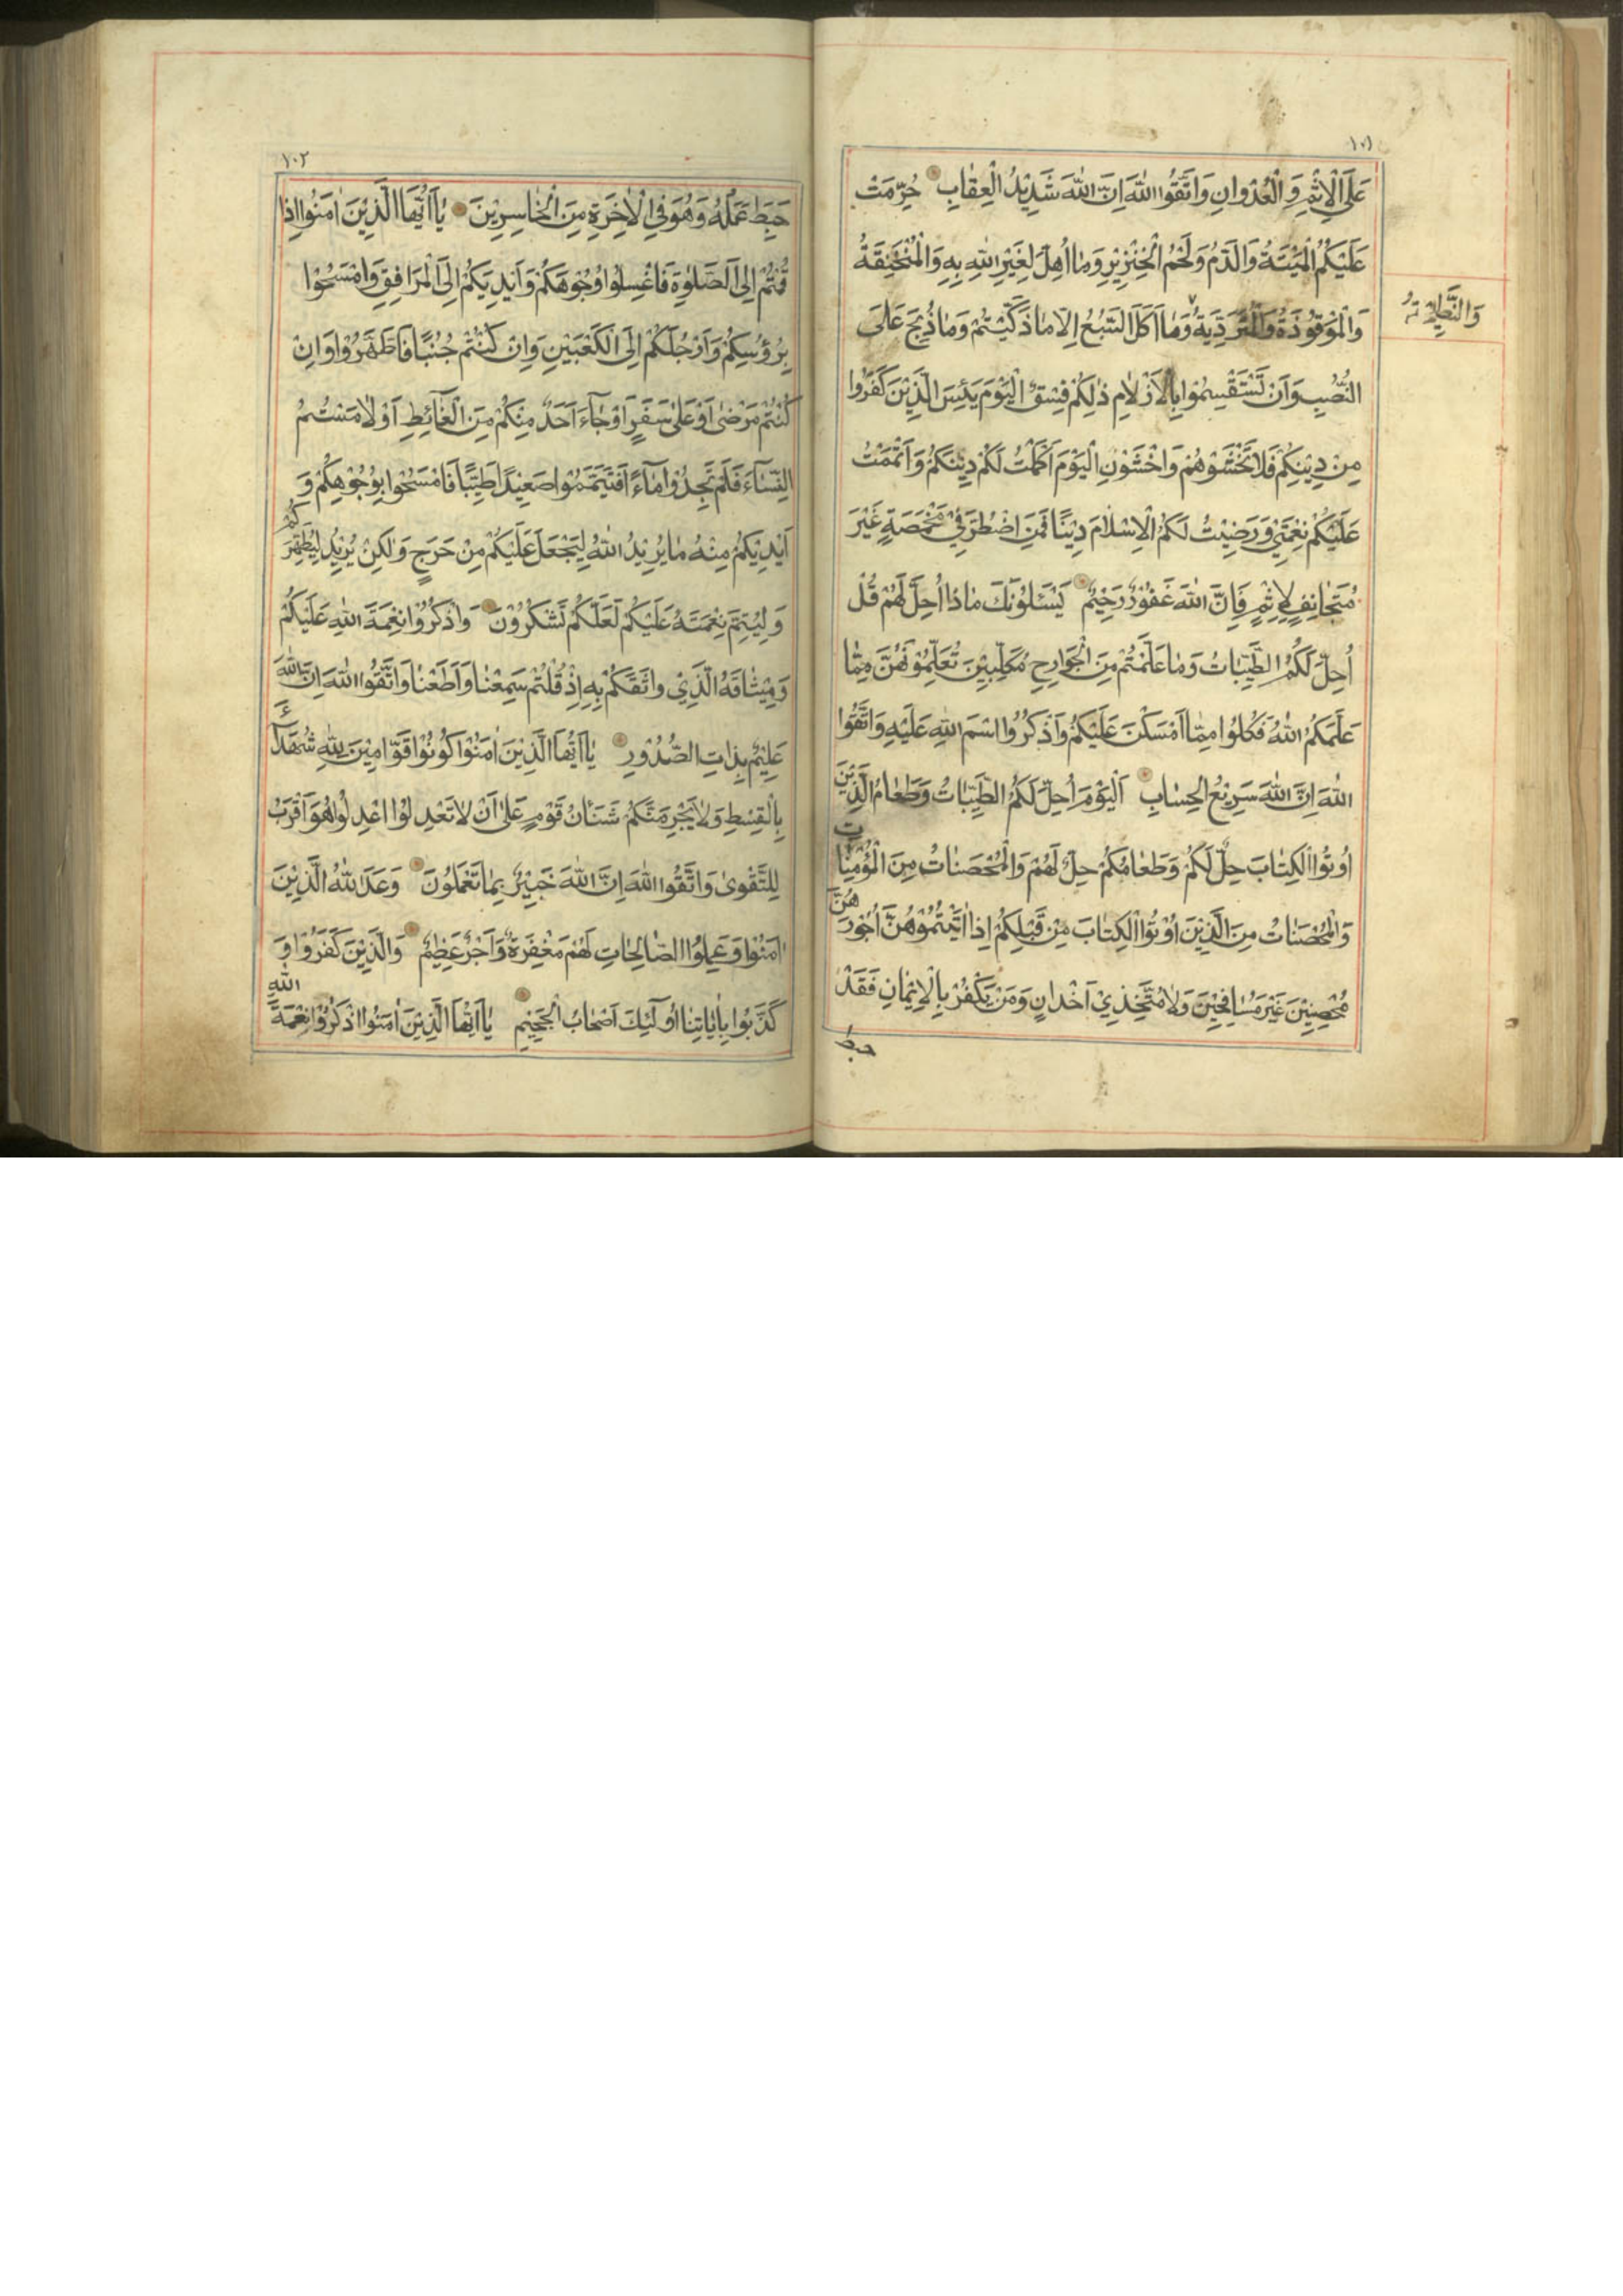 ١٠١
عَلَى الْاِثْمِ وَ الْعُدْوانِ وَاتَّقُوا اللّٰهَ اِنَّ اللّٰهَ شَدِيْدُ الْعِقٰابِ حُرِّمَتْ
عَلَيْكُمُ الْمَيْتَةُ وَالدَّمُ وَلَحْمُ الْخِنْزِيْرِ وَمٰا اُهِلَّ لِغَيْرِ اللّٰهِ بِهِ وَالْمُنْخَنِقَةُ
وَالْمَوْقُوْذَةُ وَالْمُتَرَدِّيَةُ وَمٰا اَكَلَ السَّبُعُ اِلّا مٰا ذَكَّيْتُمْ وَمٰا ذُبِحَ عَلَى
وَالنَّطِيْحَةُ
النُّصُبِ وَاَنْ تَسْتَقْسِمُوْا بِالْاَزْلٰامِ ذٰلِكُمْ فِسْقٌ اَلْيَوْمَ يَئِسَ الَّذِيْنَ كَفَرُوا
مِنْ دِيْنِكُمْ فَلٰا تَخْشَوْهُمْ وَاخْشَوْنِ الْيَوْمَ اَكْمَلْتُ لَكُمْ دِيْنَكُمْ وَاَتْمَمْتُ
عَلَيْكُمْ نِعْمَتِيْ وَرَضِيْتُ لَكُمُ الْاِسْلٰامَ دِيْنًا فَمَنِ اضْطُرَّ فِيْ مَخْمَصَةٍ غَيْرَ
مُتَجٰانِفٍ لِاِثْمٍ فَاِنَّ اللّٰهَ غَفُوْرٌ رَحِيْمٌ يَسْئَلُوْنَكَ مٰاذٰا اُحِلَّ لَهُمْ قُلْ
اُحِلَّ لَكُمُ الطَّيِّبٰاتُ وَمٰا عَلَّمْتُمْ مِنَ الْجَوٰارِحِ مُكَلِّبِيْنَ تُعَلِّمُوْنَهُنَّ مِمّٰا
عَلَّمَكُمُ اللّٰهُ فَكُلُوْا مِمّٰا اَمْسَكْنَ عَلَيْكُمْ وَاذْكُرُوا اسْمَ اللّٰهِ عَلَيْهِ وَاتَّقُوا
اللّٰهَ اِنَّ اللّٰهَ سَرِيْعُ الْحِسٰابِ اَلْيَوْمَ اُحِلَّ لَكُمُ الطَّيِّبٰاتُ وَطَعٰامُ الَّذِيْنَ
اُوتُوا الْكِتٰابَ حِلٌّ لَكُمْ وَطَعٰامُكُمْ حِلٌّ لَهُمْ وَالْمُحْصَنٰاتُ مِنَ الْمُؤْمِنٰاتِ
وَالْمُحْصَنٰاتُ مِنَ الَّذِيْنَ اُوْتُوا الْكِتٰابَ مِنْ قَبْلِكُمْ اِذٰا اٰتَيْتُمُوْهُنَّ اُجُوْرَهُنَّ
مُحْصِنِيْنَ غَيْرَ مُسٰافِحِيْنَ وَلٰا مُتَّخِذِيْ اَخْدٰانٍ وَمَنْ يَكْفُرْ بِالْاِيْمٰانِ فَقَدْ
حبط
١٠٢
حَبِطَ عَمَلُهُ وَهُوَ فِي الْاٰخِرَةِ مِنَ الْخٰاسِرِيْنَ يٰا اَيُّهَا الَّذِيْنَ اٰمَنُوْا اِذٰا
قُمْتُمْ اِلَى الصَّلٰوةِ فَاغْسِلُوْا وُجُوْهَكُمْ وَاَيْدِيَكُمْ اِلَى الْمَرٰافِقِ وَامْسَحُوْا
بِرُؤُسِكُمْ وَاَرْجُلَكُمْ اِلَى الْكَعْبَيْنِ وَاِنْ كُنْتُمْ جُنُبًا فَاطَّهَّرُوْا وَاِنْ
كُنْتُمْ مَرْضىٰ اَوْ عَلىٰ سَفَرٍ اَوْ جٰٓاءَ اَحَدٌ مِنْكُمْ مِنَ الْغٰٓائِطِ اَوْ لٰامَسْتُمُ
النِّسٰٓاءَ فَلَمْ تَجِدُوْا مٰآءً فَتَيَمَّمُوْا صَعِيْدًا طَيِّبًا فَامْسَحُوْا بِوُجُوْهِكُمْ وَ
اَيْدِيْكُمْ مِنْهُ مٰا يُرِيْدُ اللّٰهُ لِيَجْعَلَ عَلَيْكُمْ مِنْ حَرَجٍ وَلٰكِنْ يُرِيْدُ لِيُطَهِّرَكُمْ
وَلِيُتِمَّ نِعْمَتَهُ عَلَيْكُمْ لَعَلَّكُمْ تَشْكُرُوْنَ وَاذْكُرُوْا نِعْمَةَ اللّٰهِ عَلَيْكُمْ
وَمِيْثٰاقَهُ الَّذِيْ وٰاثَقَكُمْ بِهِ اِذْ قُلْتُمْ سَمِعْنٰا وَاَطَعْنٰا وَاتَّقُوا اللّٰهَ اِنَّ اللّٰهَ
عَلِيْمٌ بِذٰاتِ الصُّدُوْرِ يٰا اَيُّهَا الَّذِيْنَ اٰمَنُوْا كُوْنُوْا قَوّٰامِيْنَ لِلّٰهِ شُهَدٰٓاءَ
بِالْقِسْطِ وَلٰا يَجْرِمَنَّكُمْ شَنَاٰنُ قَوْمٍ عَلىٰ اَنْ لٰا تَعْدِلُوْا اعْدِلُوْا هُوَ اَقْرَبُ
لِلتَّقْوىٰ وَاتَّقُوا اللّٰهَ اِنَّ اللّٰهَ خَبِيْرٌ بِمٰا تَعْمَلُوْنَ وَعَدَ اللّٰهُ الَّذِيْنَ
اٰمَنُوْا وَعَمِلُوا الصّٰالِحٰاتِ لَهُمْ مَغْفِرَةٌ وَاَجْرٌ عَظِيْمٌ وَالَّذِيْنَ كَفَرُوْا وَ
كَذَّبُوْا بِاٰيٰاتِنٰا اُولٰٓئِكَ اَصْحٰابُ الْجَحِيْمِ يٰا اَيُّهَا الَّذِيْنَ اٰمَنُوا اذْكُرُوْا نِعْمَةَ اللّٰهِ